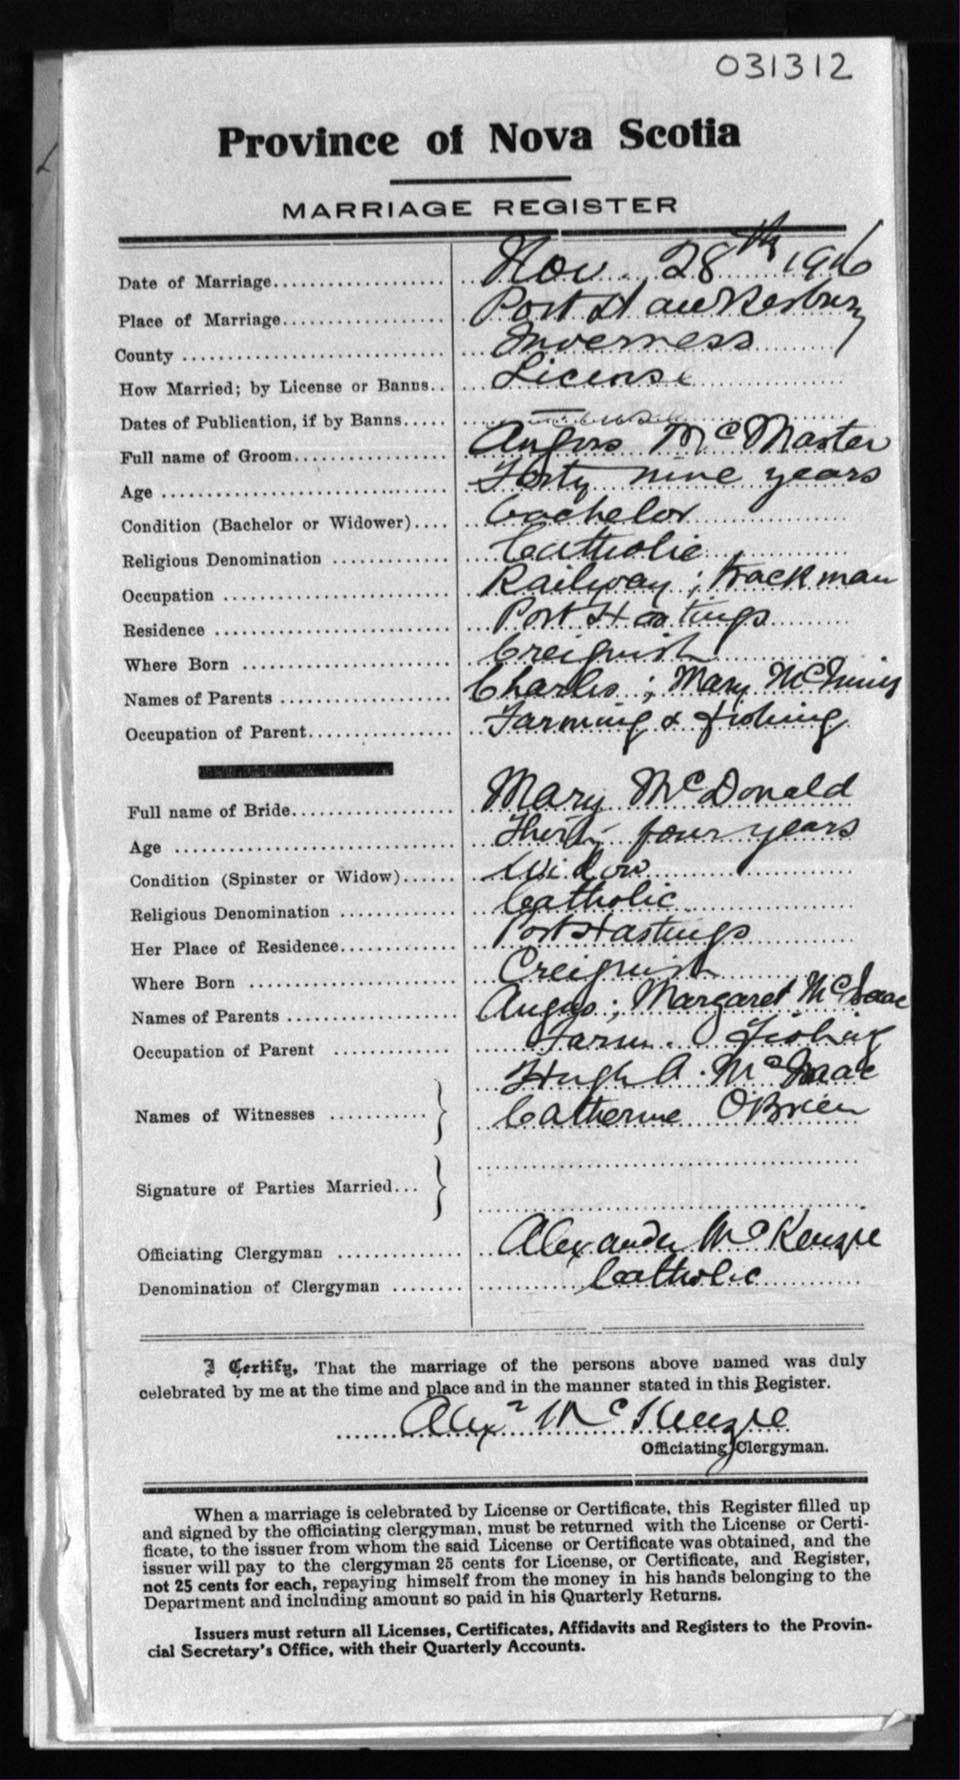 031312
Province of Nova Scotia
MARRIAGE REGISTER
Date of Marriage Nov. 28th 1916
Place of Marriage Port Hawkesbury
County Inverness
How Married; by License or Banns License
Dates of Publication, if by Banns —
Full name of Groom Angus McMaster
Age Forty nine years
Condition (Bachelor or Widower) Bachelor
Religious Denomination Catholic
Occupation Railway; trackman
Residence Port Hastings
Where Born Creignish
Names of Parents Charles; Mary McInnis
Occupation of Parent Farming & fishing
Full name of Bride Mary McDonald
Age Thirty four years
Condition (Spinster or Widow) Widow
Religious Denomination Catholic
Her Place of Residence Port Hastings
Where Born Creignish
Names of Parents Angus; Margaret McIsaac
Occupation of Parent Farm. Fishing
Hugh A. McIsaac
Names of Witnesses } Catherine O'Brien
Signature of Parties Married }
Officiating Clergyman Alexander McKenzie
Denomination of Clergyman Catholic
I Certify, That the marriage of the persons above named was duly
celebrated by me at the time and place and in the manner stated in this Register.
Alexr McKenzie
Officiating Clergyman.
When a marriage is celebrated by License or Certificate, this Register filled up
and signed by the officiating clergyman, must be returned with the License or Certi-
ficate, to the issuer from whom the said License or Certificate was obtained, and the
issuer will pay to the clergyman 25 cents for License, or Certificate, and Register,
not 25 cents for each, repaying himself from the money in his hands belonging to the
Department and including amount so paid in his Quarterly Returns.
Issuers must return all Licenses, Certificates, Affidavits and Registers to the Provin-
cial Secretary's Office, with their Quarterly Accounts.